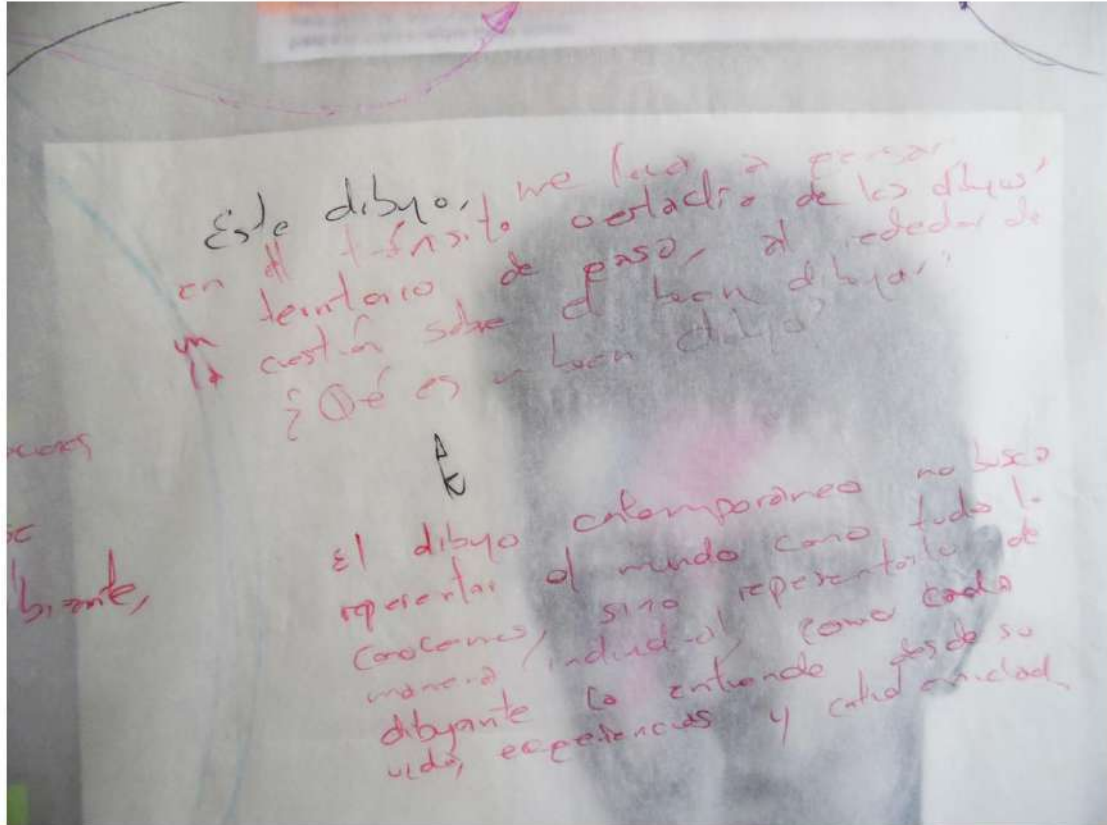 Este dibujo, me lleva a pensar
en el tránsito de los dibujos,
un territorio de paso, al rededor de
la cuestión sobre el buen dibujar,
¿Qué es un buen dibujo?
El dibujo contemporáneo no busca
representar el mundo como todo lo
conocemos, sino representarlo de
manera individual, como cada
dibujante lo entiende desde su
vida, experiencias y